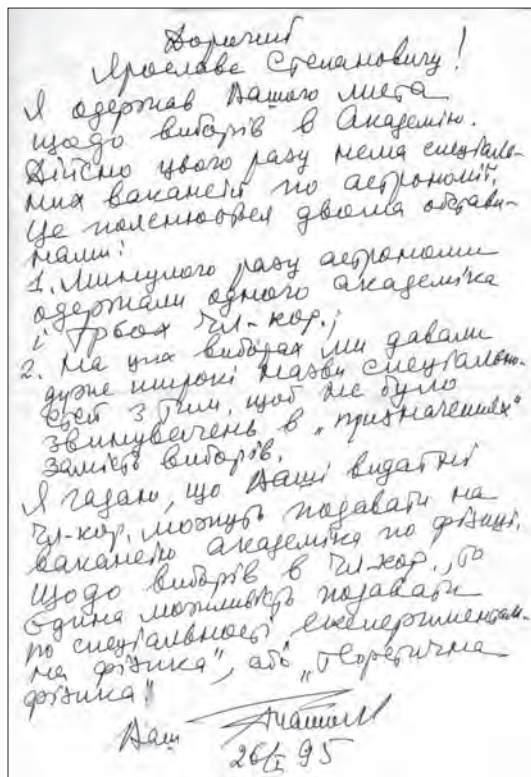 Дорогий
Ярославе Степановичу!
Я одержав Вашого листа
щодо виборів в Академію.
Дійсно цього разу нема спеціаль-
них вакансій по астрономії.
Це пояснюється двома обстави-
нами:
1. Минулого разу астрономи
одержали одного академіка
і трьох чл-кор.;
2. На цих виборах ми давали
дуже широкі назви спеціально-
стей з тим, щоб не було
звинувачень в „призначеннях"
замість виборів.
Я гадаю, що Ваші видатні
чл-кор. можуть подавати на
вакансію академіка по фізиці.
Щодо виборів в чл-кор., то
єдина можливість подавати
по спеціальності „експерименталь-
на фізика", або „теоретична
фізика"
Ваш
26/I 95